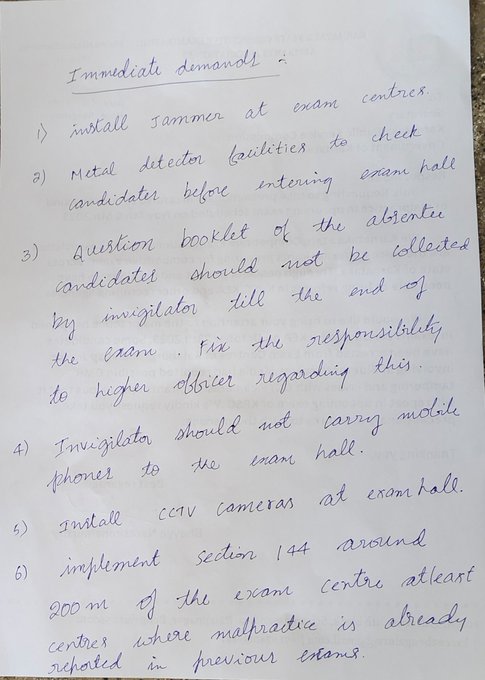 Immediate demands :-
1) install Jammer at exam centres.
2) Metal detector facilities to check
candidates before entering exam hall
3) Question booklet of the absentee
candidates should not be collected
by invigilator till the end of
the exam. Fix the responsibility
to higher officer regarding this.
4) Invigilator should not carry mobile
phones to the exam hall.
5) Install CCTV cameras at exam hall.
6) implement section 144 around
200m of the exam centre atleast
centres where malpractice is already
reported in previous exams.